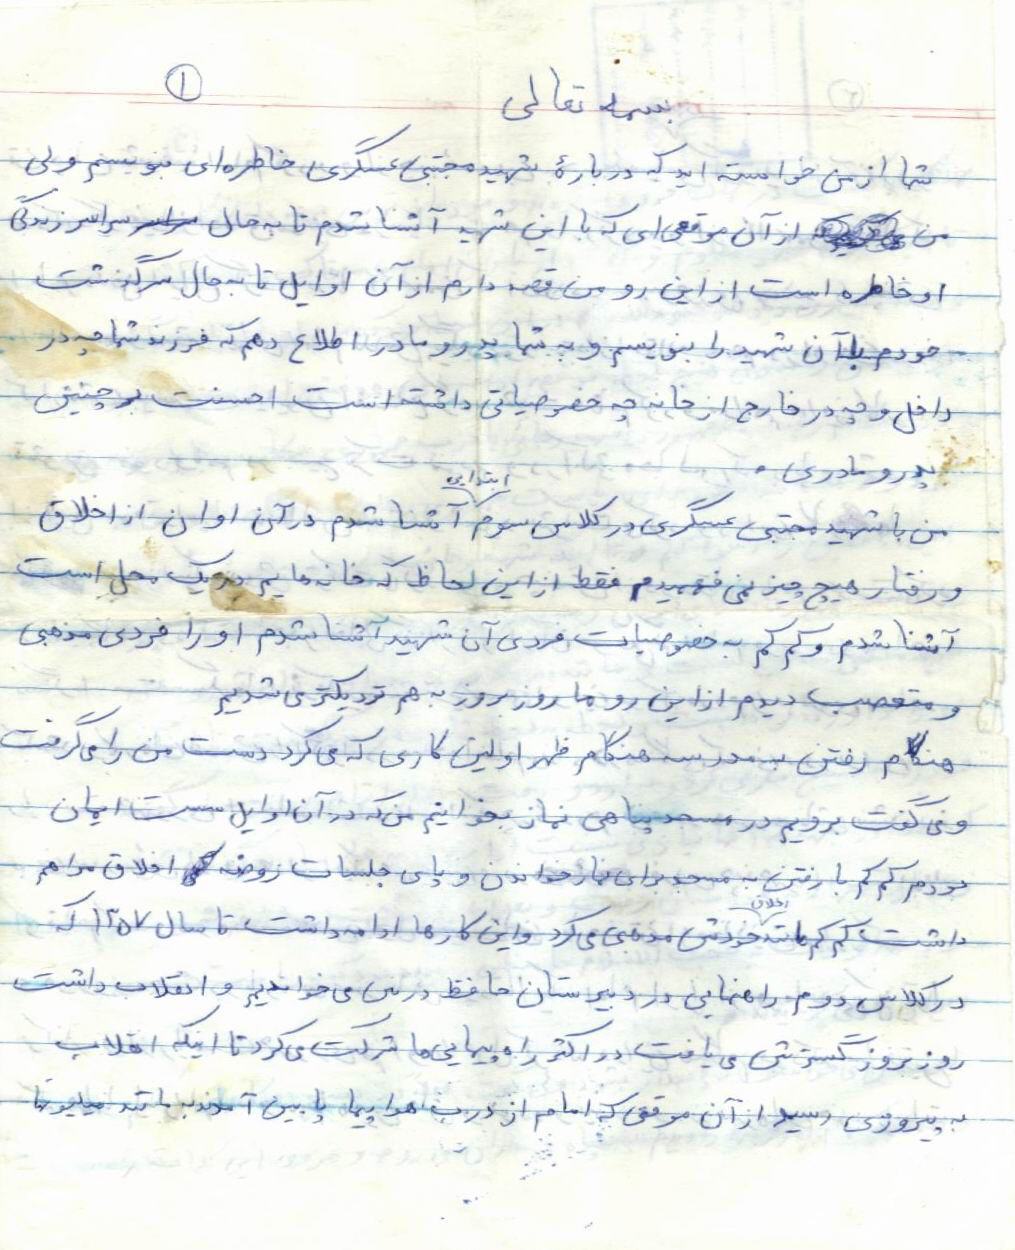 ۱
بسمه تعالی
شما از من خواسته اید که دربارهٔ شهید مجتبی عسگری خاطره‌ای بنویسم ولی
من از آن موقعی‌ای که با این شهید آشنا شدم تا به حال سراسر زندگی
او خاطره است از این رو من قصد دارم از آن اوایل تا به حال سرگذشت
خودم با آن شهید را بنویسم و به شما پدر و مادر اطلاع دهم که فرزند شما چه در
داخل و چه در خارج از خانه چه خصوصیاتی داشته است احسنت بر چنین
پدر و مادری .
من با شهید مجتبی عسگری در کلاس سوم ابتدایی آشنا شدم در آن اوان از اخلاق
و رفتار هیچ چیز نمی فهمیدم فقط از این لحاظ که خانه مایم در یک محل است
آشنا شدم و کم کم به خصوصیات فردی آن شهید آشنا شدم او را فردی مذهبی
و متعصب دیدم از این رو ما روز بروز به هم نزدیکتر می شدیم
هنگام رفتن به مدرسه هنگام ظهر اولین کاری که می کرد دست من را می گرفت
و می گفت برویم در مسجد نماز بخوانیم من که در آن اوایل سست ایمان
بودم کم کم با رفتن به مسجد برای نماز خواندن و پای جلسات روضه اخلاق مرا هم
داشت کم کم مانند اخلاق خودش مذهبی می کرد و این کارها ادامه داشت تا سال ۱۳۵۷ که
در کلاس دوم راهنمایی در دبیرستان حافظ درس می خواندیم و انقلاب داشت
روز بروز گسترش می یافت در اکثر راه پیمایی ها شرکت می کرد تا اینکه انقلاب
به پیروزی رسید از آن موقعی که امام از درب هواپیما پایین آمدند مانند میلیونها